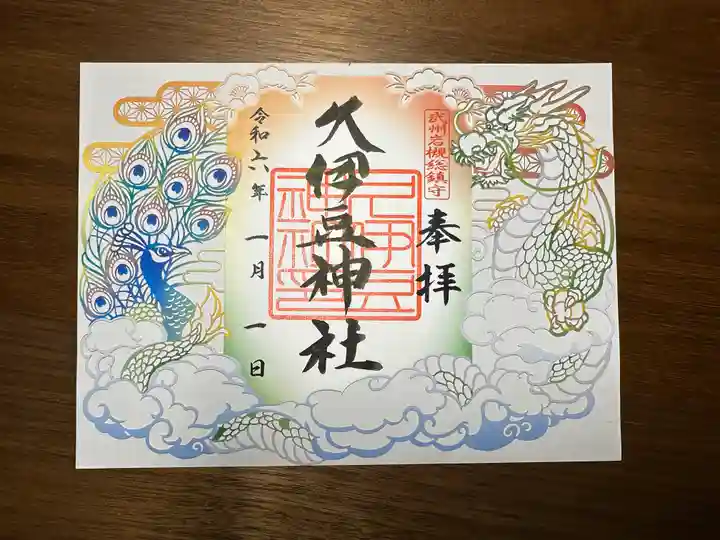 武州岩槻総鎮守
奉拝
久伊豆神社
令和六年一月一日